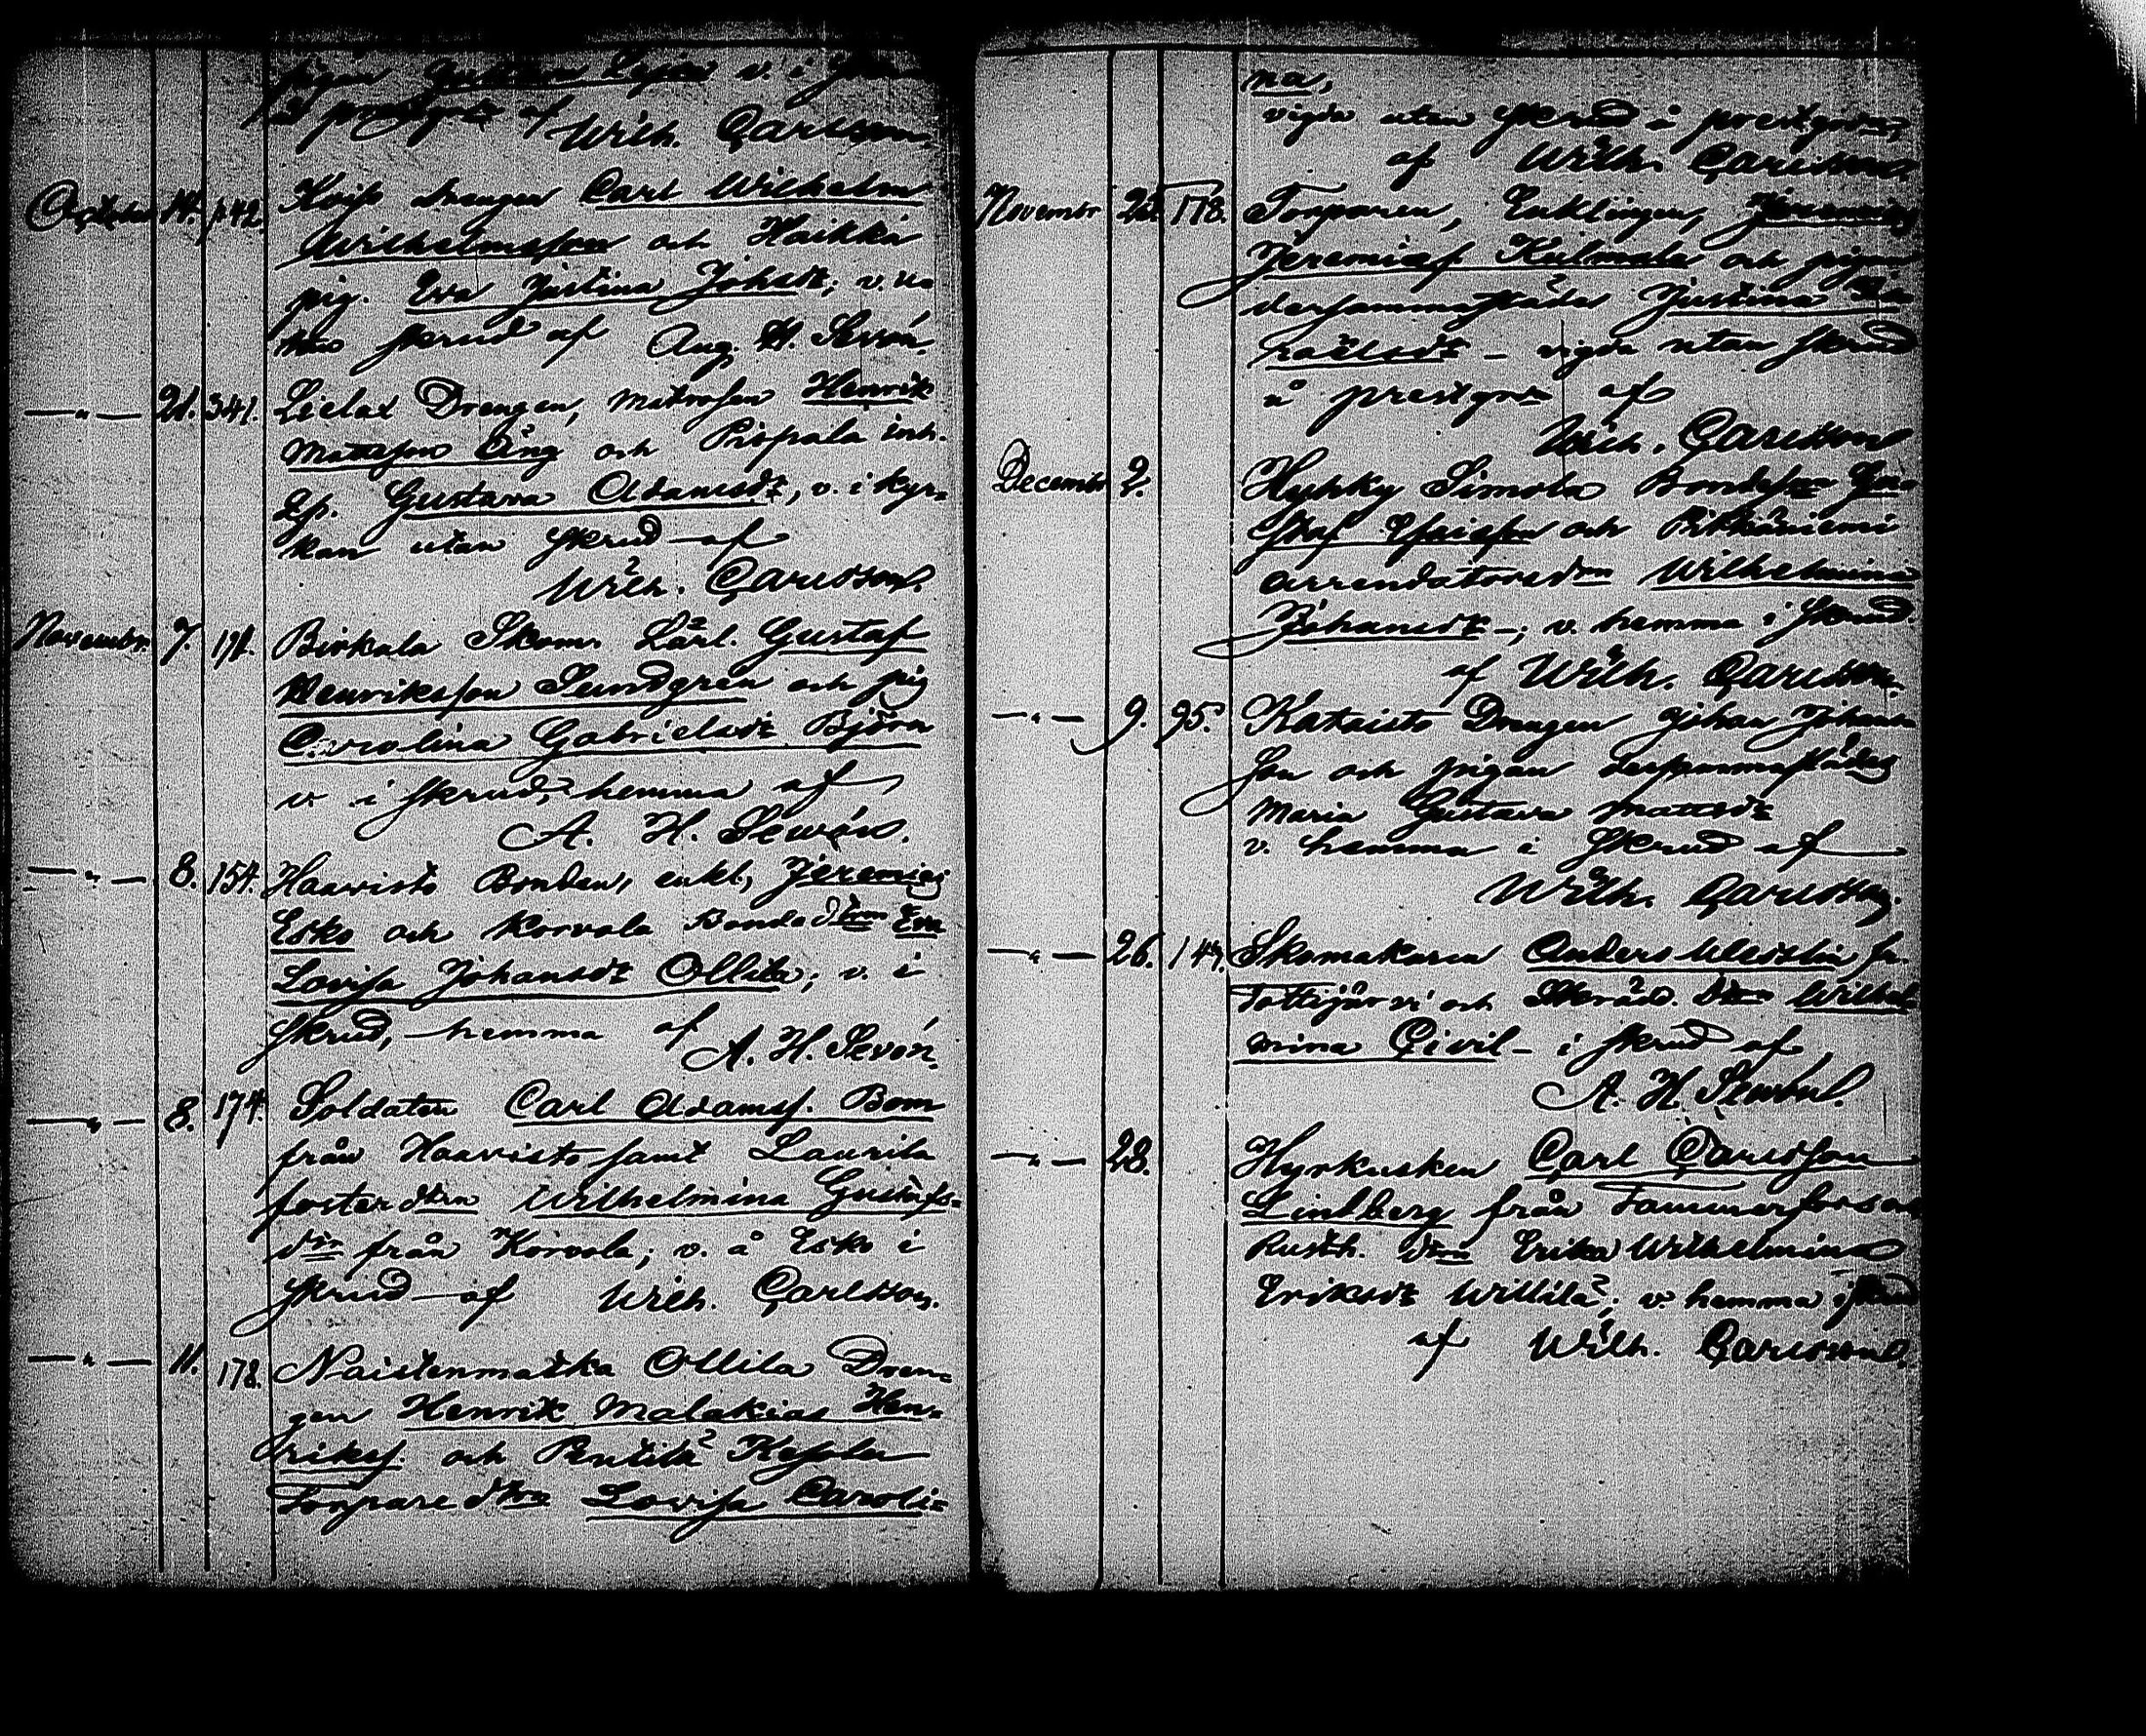 pigan Gustava v. i
af
Wilh. Carlsson.
October 14. p.42. drengen Carl Wilhelm
Wilhelmsson och Haikka
pig. Eva Justina Johsdt; v. u-
tan skrud af Aug. H. Sevón.
—"— 21. 341. Lielax Drengen, matrosen Henrik
Mattsson Äng och Pispala inh.
Gustava Adamsdt, v. i kyr-
kan utan skrud af
Wilh. Carlsson.
Novembr. 7. 171. Birkala Skom. Lärl. Gustaf
Henriksson Sundgrén och pig
Carolina Gabrielsdt Björn
v. i skrud, hemma af
A. H. Sewón.
—"— 8. 154. Haavisto Bonden, enkl., Jeremias
Esko och Korvola Bonde dtren Eva
Lovisa Johansdt Ollila; v. i
skrud, hemma af
A. H. Sevón.
—"— 8. 174. Soldaten Carl Adamss. Bom
från Haavisto samt Laurila
foster dtren Wilhelmina Gustafs-
dtr från Korvola; v. å Esko i
skrud af Wilh. Carlsson.
—"— 11. 178. Naistenmatka Ollila Dren-
gen Henrik Malakias Hen-
rikss. och Penttilä
Torpare dtren Lovisa Caroli-
na,
vigda utan skrud å prestgrdn
af Wilh. Carlsson.
Novembr 178. Torparen, Enklingen, Jeremias
Jeremias Kulmala och pigan
dersammastädes Justina
vigda utan skrud
å prestgrdn af
Wilh. Carlsson
Decembr 2. Hyhky Simola Bondeson Gu-
staf och Pitkäniemi
arrendatorsdtrn Wilhelmina
Johansdt; v. hemma i skrud.
af Wilh. Carlsson.
—"— 9. 95. Kataisto Drengen Johan Johans-
son och pigan dersammastädes
Maria Gustava Mattsdt
v. hemma i skrud af
Wilh. Carlsson.
—"— 26. 149. Skomakaren Anders Westlin fr.
Tottijärvi och Skrädd. dtren Wilhel-
mina Civil – i skrud af
A. H. Sewón.
—"— 28. Hyrkusken Carl Carlsson
Lindberg från Tammerfors och
Rusth. dtren Erika Wilhelmina
Eriksdt Willilä; v. hemma i skrud
af Wilh. Carlsson.